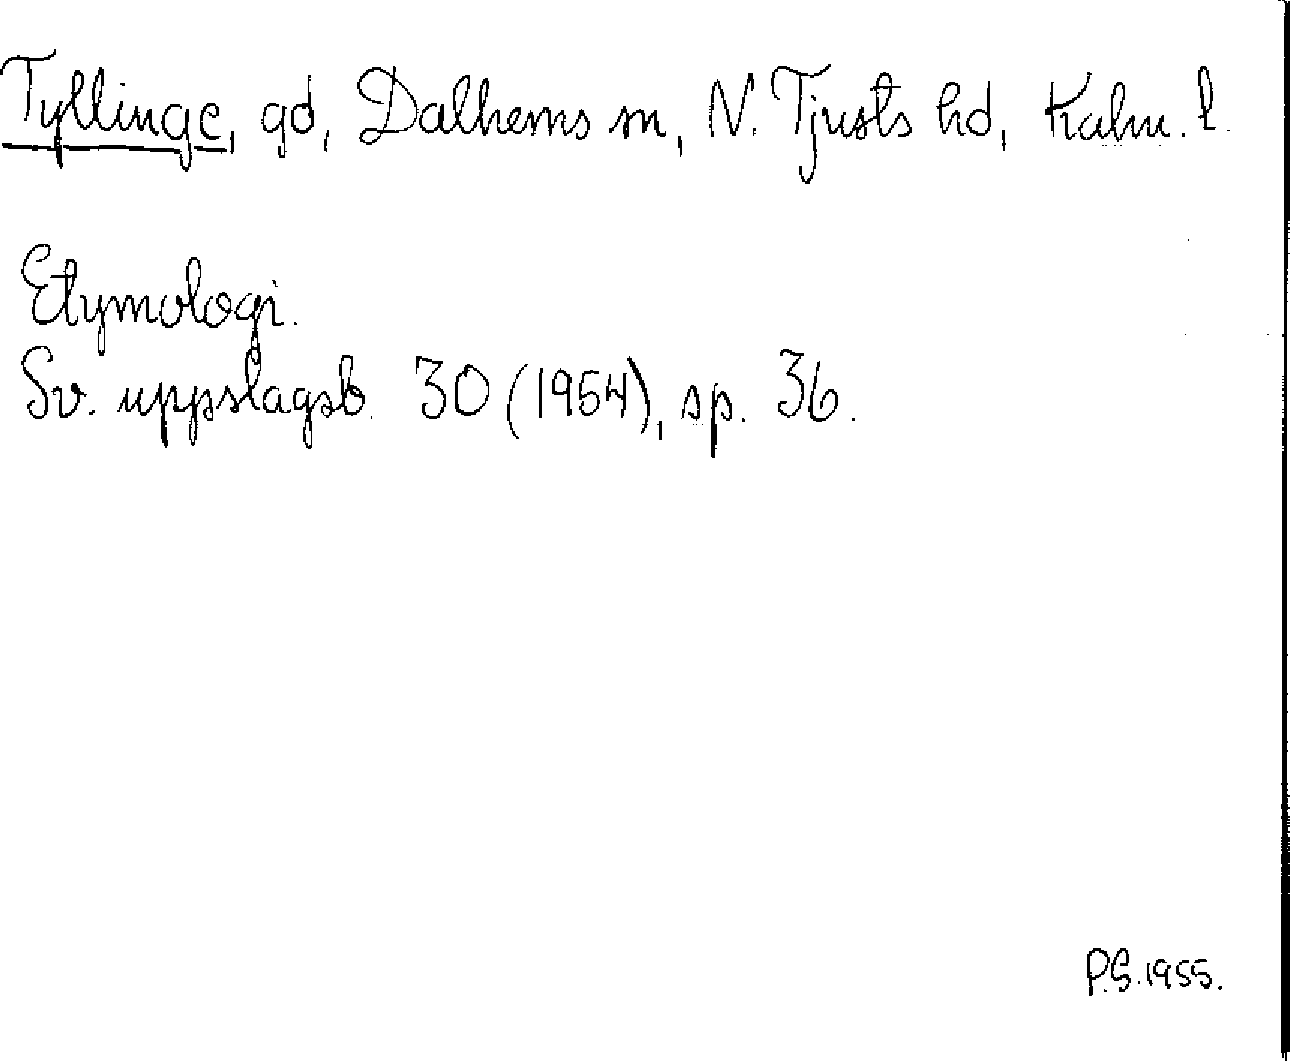 Tyllinge, gd, Dalhems sn, N. Tjusts hd, Kalm. l.
Etymologi.
Sv. uppslagsb. 30 (1954), sp. 36.
P.S. 1955.